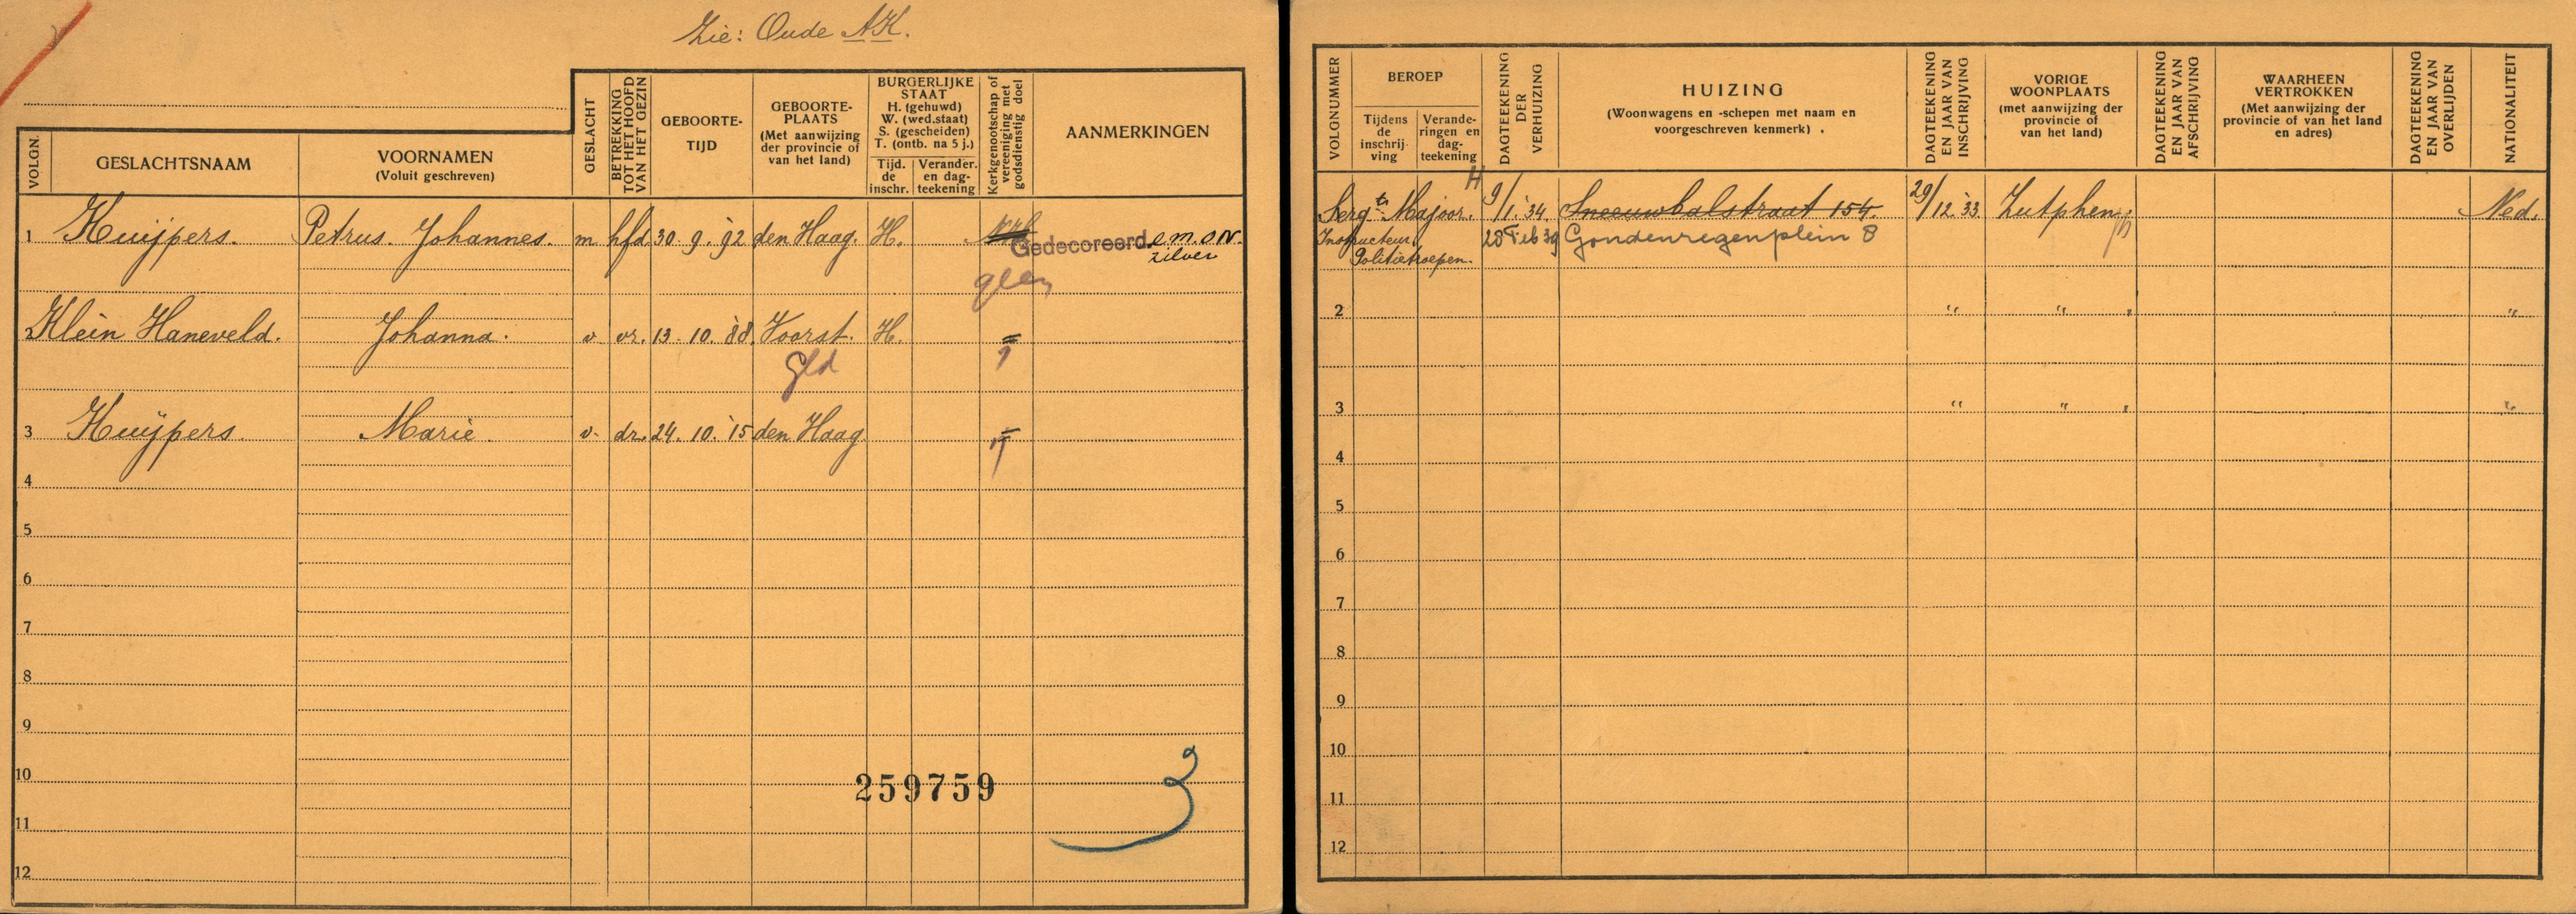 Zie: Oude AK.
VOLGN.
GESLACHTSNAAM
VOORNAMEN
(Voluit geschreven)
GESLACHT
BETREKKING
TOT HET HOOFD
VAN HET GEZIN
GEBOORTE-
TIJD
GEBOORTE-
PLAATS
(Met aanwijzing
der provincie of
van het land)
BURGERLIJKE
STAAT
H. (gehuwd)
W. (wed.staat)
S. (gescheiden)
T. (ontb. na 5 j.)
Tijd.
de
inschr.
Verander.
en dag-
teekening
Kerkgenootschap of
vereeniging met
godsdienstig doel
AANMERKINGEN
1 Kuijpers. Petrus. Johannes. m hfd 30. 9. '92 den Haag. H. Gedecoreerd e.m.o.N.
zilver
geen
2 Klein Haneveld. Johanna. v. vr. 13. 10. '88. Voorst. H. =
Gld
3 Kuijpers. Marie. v. dr. 24. 10. '15 den Haag =
4
5
6
7
8
9
10
259759
3
11
12
VOLGNUMMER
BEROEP
Tijdens
de
inschrij-
ving
Verande-
ringen en
dag-
teekening
DAGTEEKENING
DER
VERHUIZING
HUIZING
(Woonwagens en -schepen met naam en
voorgeschreven kenmerk) .
DAGTEEKENING
EN JAAR VAN
INSCHRIJVING
VORIGE
WOONPLAATS
(met aanwijzing der
provincie of
van het land)
DAGTEEKENING
EN JAAR VAN
AFSCHRIJVING
WAARHEEN
VERTROKKEN
(Met aanwijzing der
provincie of van het land
en adres)
DAGTEEKENING
EN JAAR VAN
OVERLIJDEN
NATIONALITEIT
H
Sergt. Majoor. 9/1. '34. Sneeuwbalstraat 154. 29/12 '33 Zutphen Ned.
Instructeur. 28 Feb 39 Goudenregenplein 8
Politietroepen.
2 " " " "
3 " " " "
4
5
6
7
8
9
10
11
12